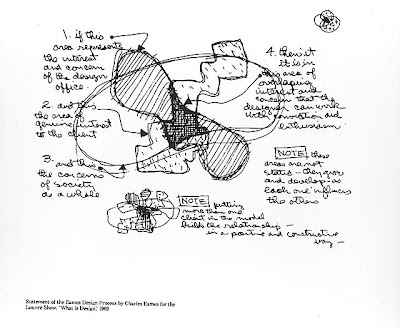 1. if this
area represents
the interest
and concern
of the design
office
2. and this
the area of
genuine interest
to the client
3. and this
the concerns
of society
as a whole
4. then it
is in
this area of
overlapping
interest and
concern that the
designer can work
with conviction and
enthusiasm
NOTE these
areas are not
static - they grow
and develop - as
each one influences
the others
NOTE putting
more than one
client in the model
builds the relationship -
in a positive and constructive
way -
Statement of the Eames Design Process by Charles Eames for the
Louvre Show, "What is Design" 1969